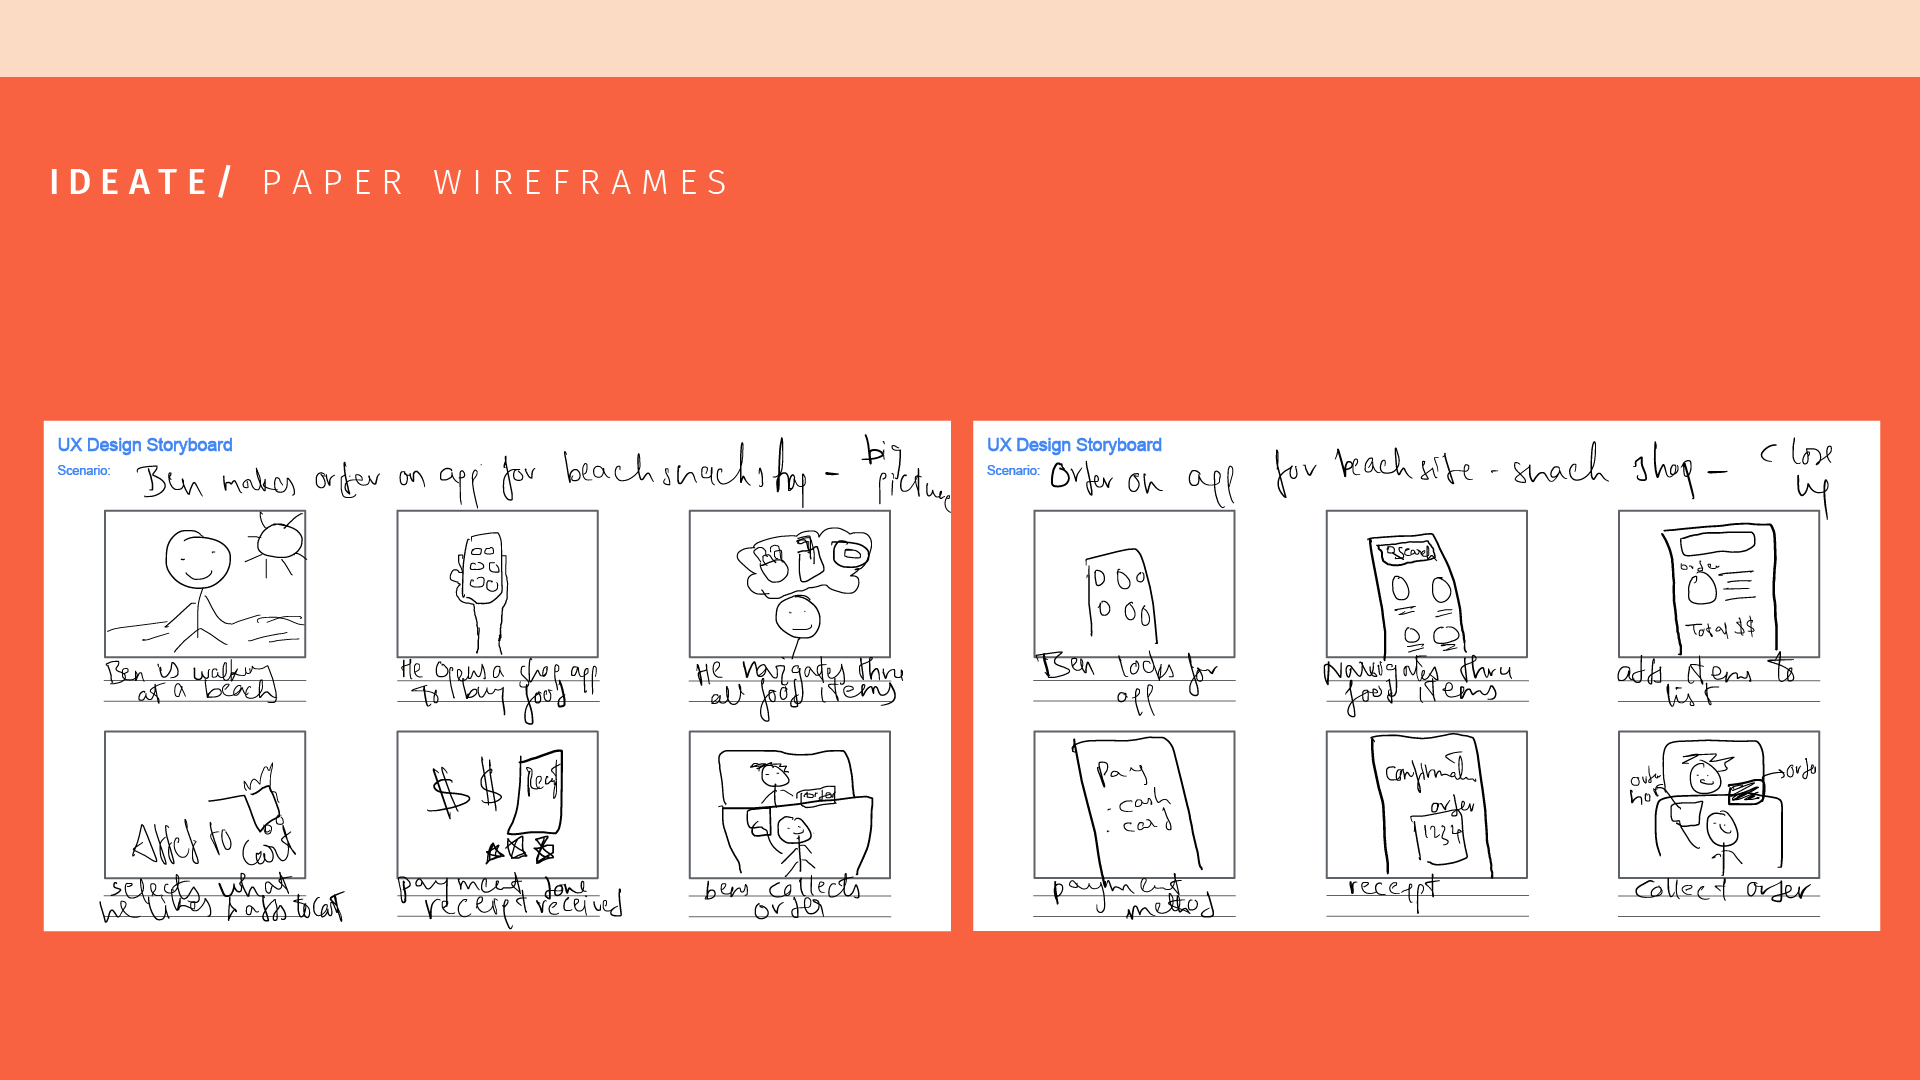 IDEATE/ PAPER WIREFRAMES
UX Design Storyboard
Scenario: Ben makes order on app for beach snack shop - big
picture
Ben is walking
at a beach
He opens a shop app
to buy food
He navigates thru
all food items
Added to
cart
selects what
he likes & adds to cart
$ $
payment done
receipt received
order
bens collects
order
UX Design Storyboard
Scenario: Order on app for beach site - snack shop - close
up
Ben looks for
app
search
Navigates thru
food items
order
Total $$
adds items to
list
Pay
. cash
. card
payment
method
confirmation
order
1234
receipt
order
order
collect order